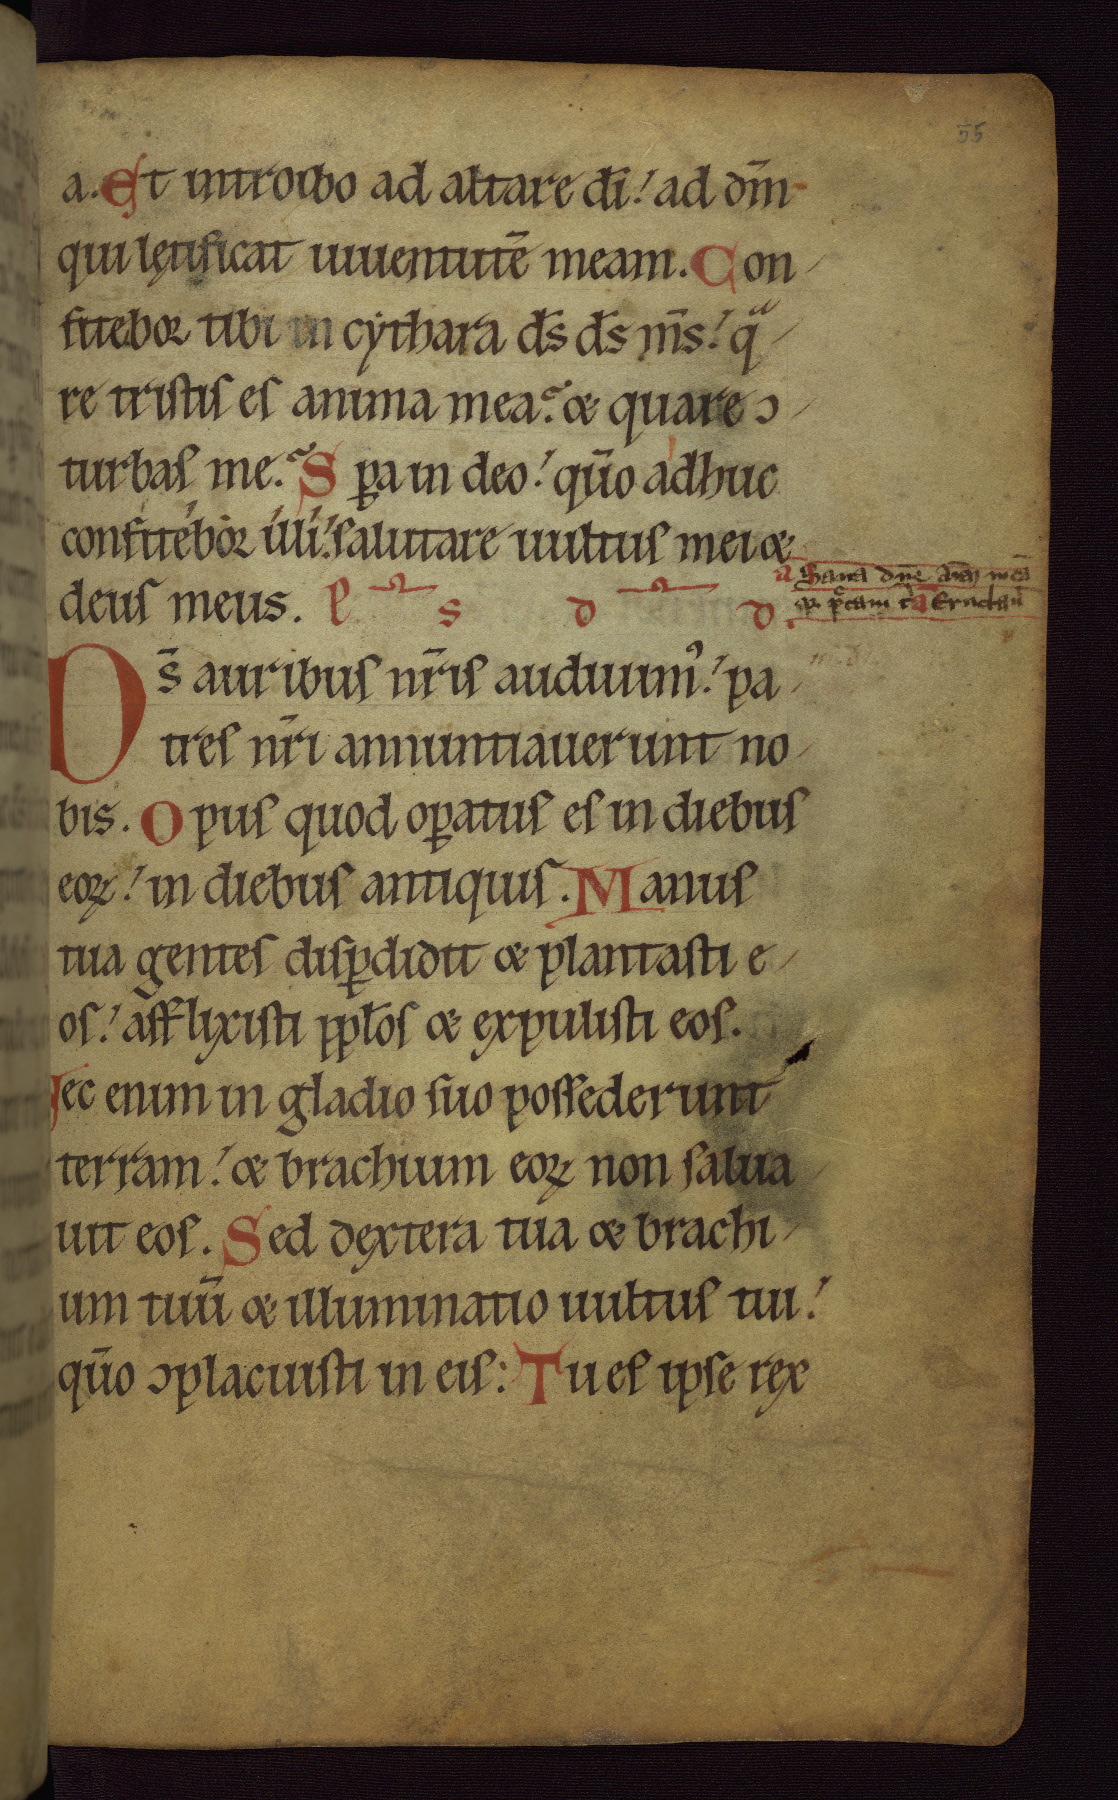 55
a. Et introibo ad altare dī! ad dm̄
qui lętificat iuuentutē meam. Con
fitebor tibi in cythara ds̄ ds̄ ms̄! qͣ
re tristis es anima mea? & quare ↄ
turbas me? Spa in deo! qūo adhuc
confitebor illi! salutare uultus mei &
deus meus. P s D D.
a Sana dn̄e
Eructaū
Ds̄ auribus nr̄is audiuimꝰ! pa
tres nr̄i annuntiauerunt no
bis. Opus quod oꝑatus es in diebus
eoꝝ! in diebus antiquis. Manus
tua gentes disꝑdidit & plantasti e
os! afflixisti ppl̄os & expulisti eos.
Nec enim in gladio suo possederunt
terram! & brachium eoꝝ non salua
uit eos. Sed dextera tua & brachi
um tuū & illuminatio uultus tui!
qūo ↄplacuisti in eis: Tu es ipse rex